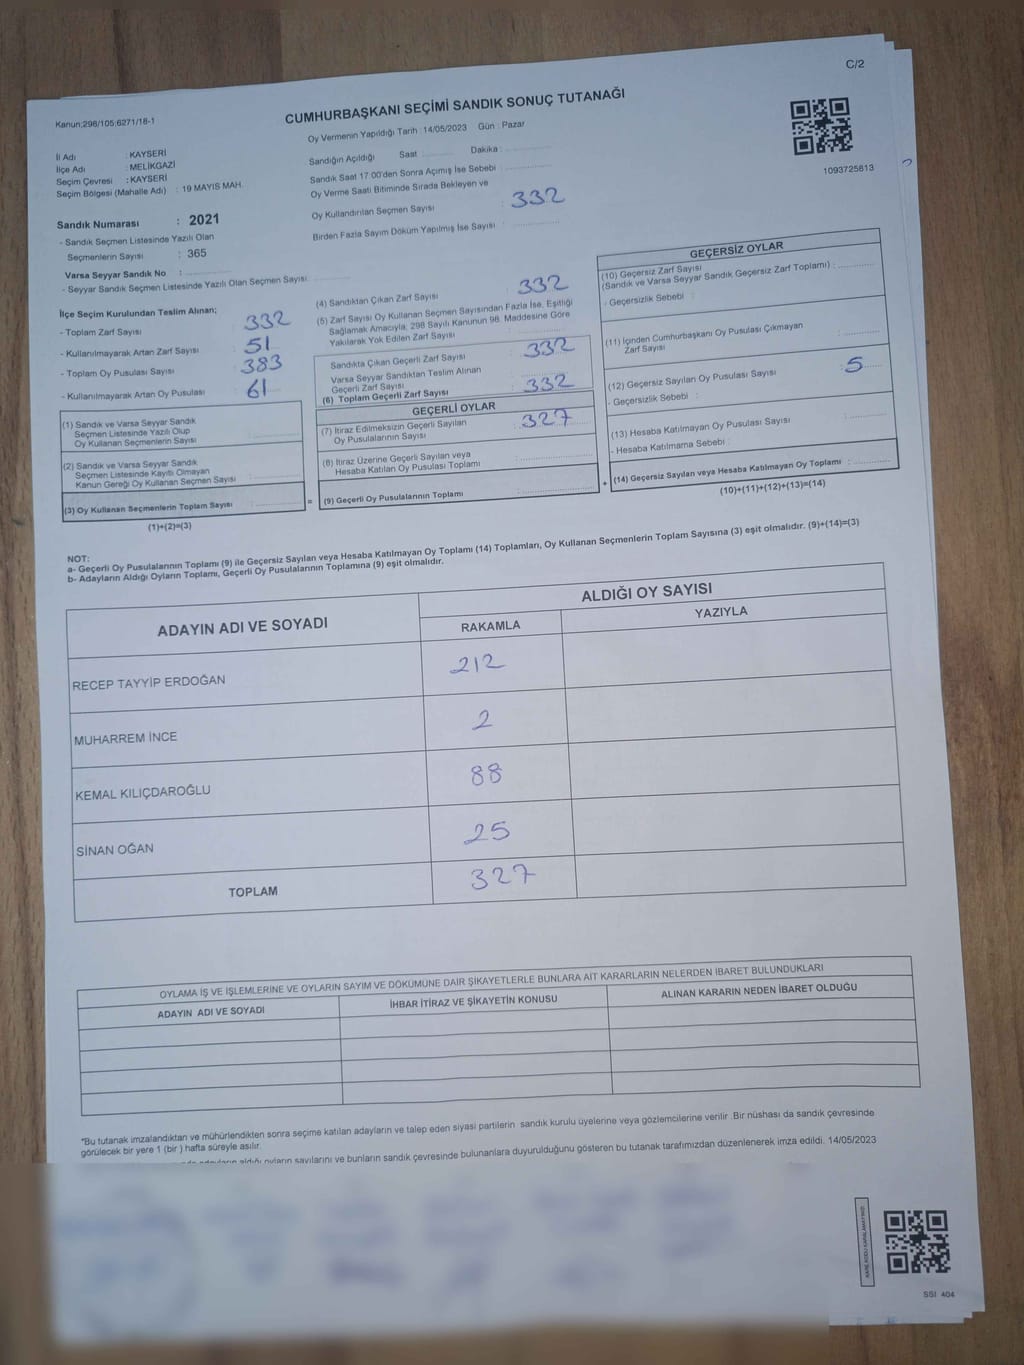 C/2
Kanun;298/105;6271/18-1
CUMHURBAŞKANI SEÇİMİ SANDIK SONUÇ TUTANAĞI
Oy Vermenin Yapıldığı Tarih : 14/05/2023 Gün : Pazar
1093725813
İl Adı : KAYSERİ
İlçe Adı : MELİKGAZİ
Seçim Çevresi : KAYSERİ
Seçim Bölgesi (Mahalle Adı) : 19 MAYIS MAH.
Sandığın Açıldığı Saat : Dakika :
Sandık Saat 17:00'den Sonra Açımış İse Sebebi :
Oy Verme Saati Bitiminde Sırada Bekleyen ve
Oy Kullandırılan Seçmen Sayısı : 332
Birden Fazla Sayım Döküm Yapılmış İse Sayısı :
Sandık Numarası : 2021
- Sandık Seçmen Listesinde Yazılı Olan
Seçmenlerin Sayısı : 365
Varsa Seyyar Sandık No :
- Seyyar Sandık Seçmen Listesinde Yazılı Olan Seçmen Sayısı:
İlçe Seçim Kurulundan Teslim Alınan;
- Toplam Zarf Sayısı : 332
- Kullanılmayarak Artan Zarf Sayısı : 51
- Toplam Oy Pusulası Sayısı : 383
- Kullanılmayarak Artan Oy Pusulası : 61
(4) Sandıktan Çıkan Zarf Sayısı : 332
(5) Zarf Sayısı Oy Kullanan Seçmen Sayısından Fazla İse, Eşitliği
Sağlamak Amacıyla, 298 Sayılı Kanunun 98. Maddesine Göre
Yakılarak Yok Edilen Zarf Sayısı :
Sandıkta Çıkan Geçerli Zarf Sayısı : 332
Varsa Seyyar Sandıktan Teslim Alınan
Geçerli Zarf Sayısı :
(6) Toplam Geçerli Zarf Sayısı : 332
GEÇERLİ OYLAR
(7) İtiraz Edilmeksizin Geçerli Sayılan
Oy Pusulalarının Sayısı : 327
(8) İtiraz Üzerine Geçerli Sayılan veya
Hesaba Katılan Oy Pusulası Toplamı :
(9) Geçerli Oy Pusulalarının Toplamı :
GEÇERSİZ OYLAR
(10) Geçersiz Zarf Sayısı
(Sandık ve Varsa Seyyar Sandık Geçersiz Zarf Toplamı) :
- Geçersizlik Sebebi :
(11) İçinden Cumhurbaşkanı Oy Pusulası Çıkmayan
Zarf Sayısı :
(12) Geçersiz Sayılan Oy Pusulası Sayısı : 5
- Geçersizlik Sebebi :
(13) Hesaba Katılmayan Oy Pusulası Sayısı :
- Hesaba Katılmama Sebebi :
(14) Geçersiz Sayılan veya Hesaba Katılmayan Oy Toplamı :
(10)+(11)+(12)+(13)=(14)
(1) Sandık ve Varsa Seyyar Sandık
Seçmen Listesinde Yazılı Olup
Oy Kullanan Seçmenlerin Sayısı :
(2) Sandık ve Varsa Seyyar Sandık
Seçmen Listesinde Kayıtlı Olmayan
Kanun Gereği Oy Kullanan Seçmen Sayısı :
(3) Oy Kullanan Seçmenlerin Toplam Sayısı :
= +
(1)+(2)=(3)
NOT:
a- Geçerli Oy Pusulalarının Toplamı (9) ile Geçersiz Sayılan veya Hesaba Katılmayan Oy Toplamı (14) Toplamları, Oy Kullanan Seçmenlerin Toplam Sayısına (3) eşit olmalıdır. (9)+(14)=(3)
b- Adayların Aldığı Oyların Toplamı, Geçerli Oy Pusulalarının Toplamına (9) eşit olmalıdır.
ADAYIN ADI VE SOYADI
ALDIĞI OY SAYISI
RAKAMLA YAZIYLA
RECEP TAYYİP ERDOĞAN 212
MUHARREM İNCE 2
KEMAL KILIÇDAROĞLU 88
SİNAN OĞAN 25
TOPLAM 327
OYLAMA İŞ VE İŞLEMLERİNE VE OYLARIN SAYIM VE DÖKÜMÜNE DAİR ŞİKAYETLERLE BUNLARA AİT KARARLARIN NELERDEN İBARET BULUNDUKLARI
ADAYIN ADI VE SOYADI İHBAR İTİRAZ VE ŞİKAYETİN KONUSU ALINAN KARARIN NEDEN İBARET OLDUĞU
*Bu tutanak imzalandıktan ve mühürlendikten sonra seçime katılan adayların ve talep eden siyasi partilerin sandık kurulu üyelerine veya gözlemcilerine verilir. Bir nüshası da sandık çevresinde
görülecek bir yere 1 (bir ) hafta süreyle asılır.
adayların aldığı oyların sayılarını ve bunların sandık çevresinde bulunanlara duyurulduğunu gösteren bu tutanak tarafımızdan düzenlenerek imza edildi. 14/05/2023
SSI 404